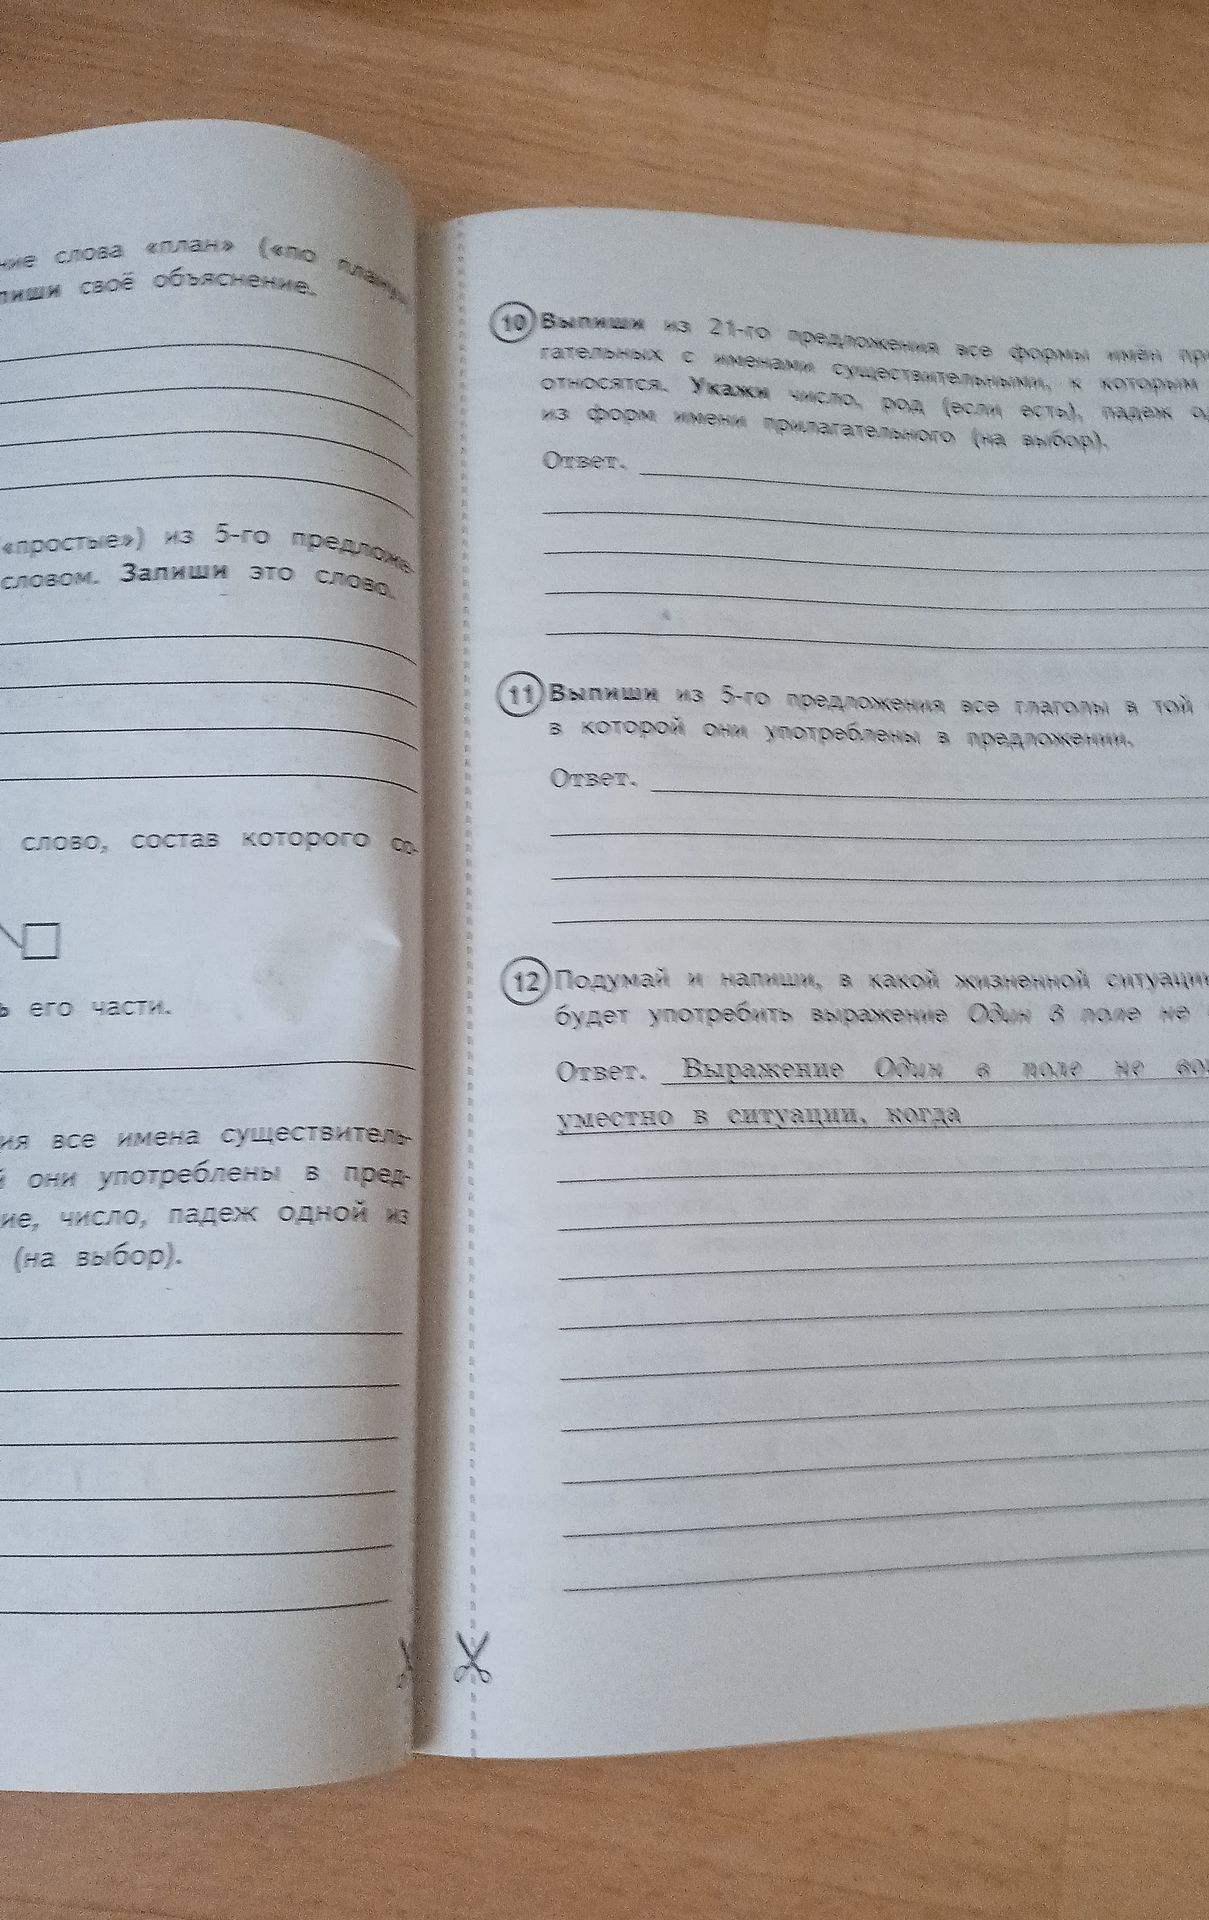 ние слова «план» («по плану»
пиши своё объяснение.
«простые») из 5-го предложе-
словом. Запиши это слово.
слово, состав которого со-
его части.
ия все имена существитель-
й они употреблены в пред-
ие, число, падеж одной из
(на выбор).
10 Выпиши из 21-го предложения все формы имён при
гательных с именами существительными, к которым
относятся. Укажи число, род (если есть), падеж од
из форм имени прилагательного (на выбор).
Ответ.
11 Выпиши из 5-го предложения все глаголы в той
в которой они употреблены в предложении.
Ответ.
12 Подумай и напиши, в какой жизненной ситуации
будет употребить выражение Один в поле не
Ответ. Выражение Один в поле не вои
уместно в ситуации, когда